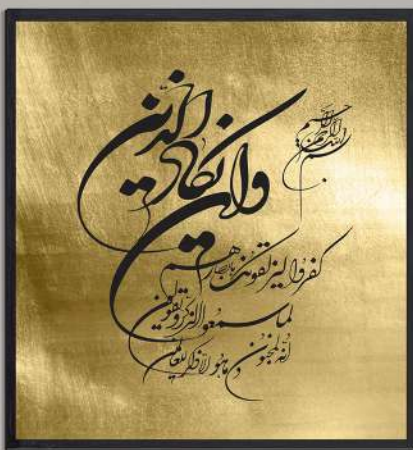 بسم الله الرحمن الرحیم
وان یکاد الذین
کفروا لیزلقونک بابصارهم
لما سمعوا الذکر و یقولون
انه لمجنون و ما هو الا ذکر للعالمین